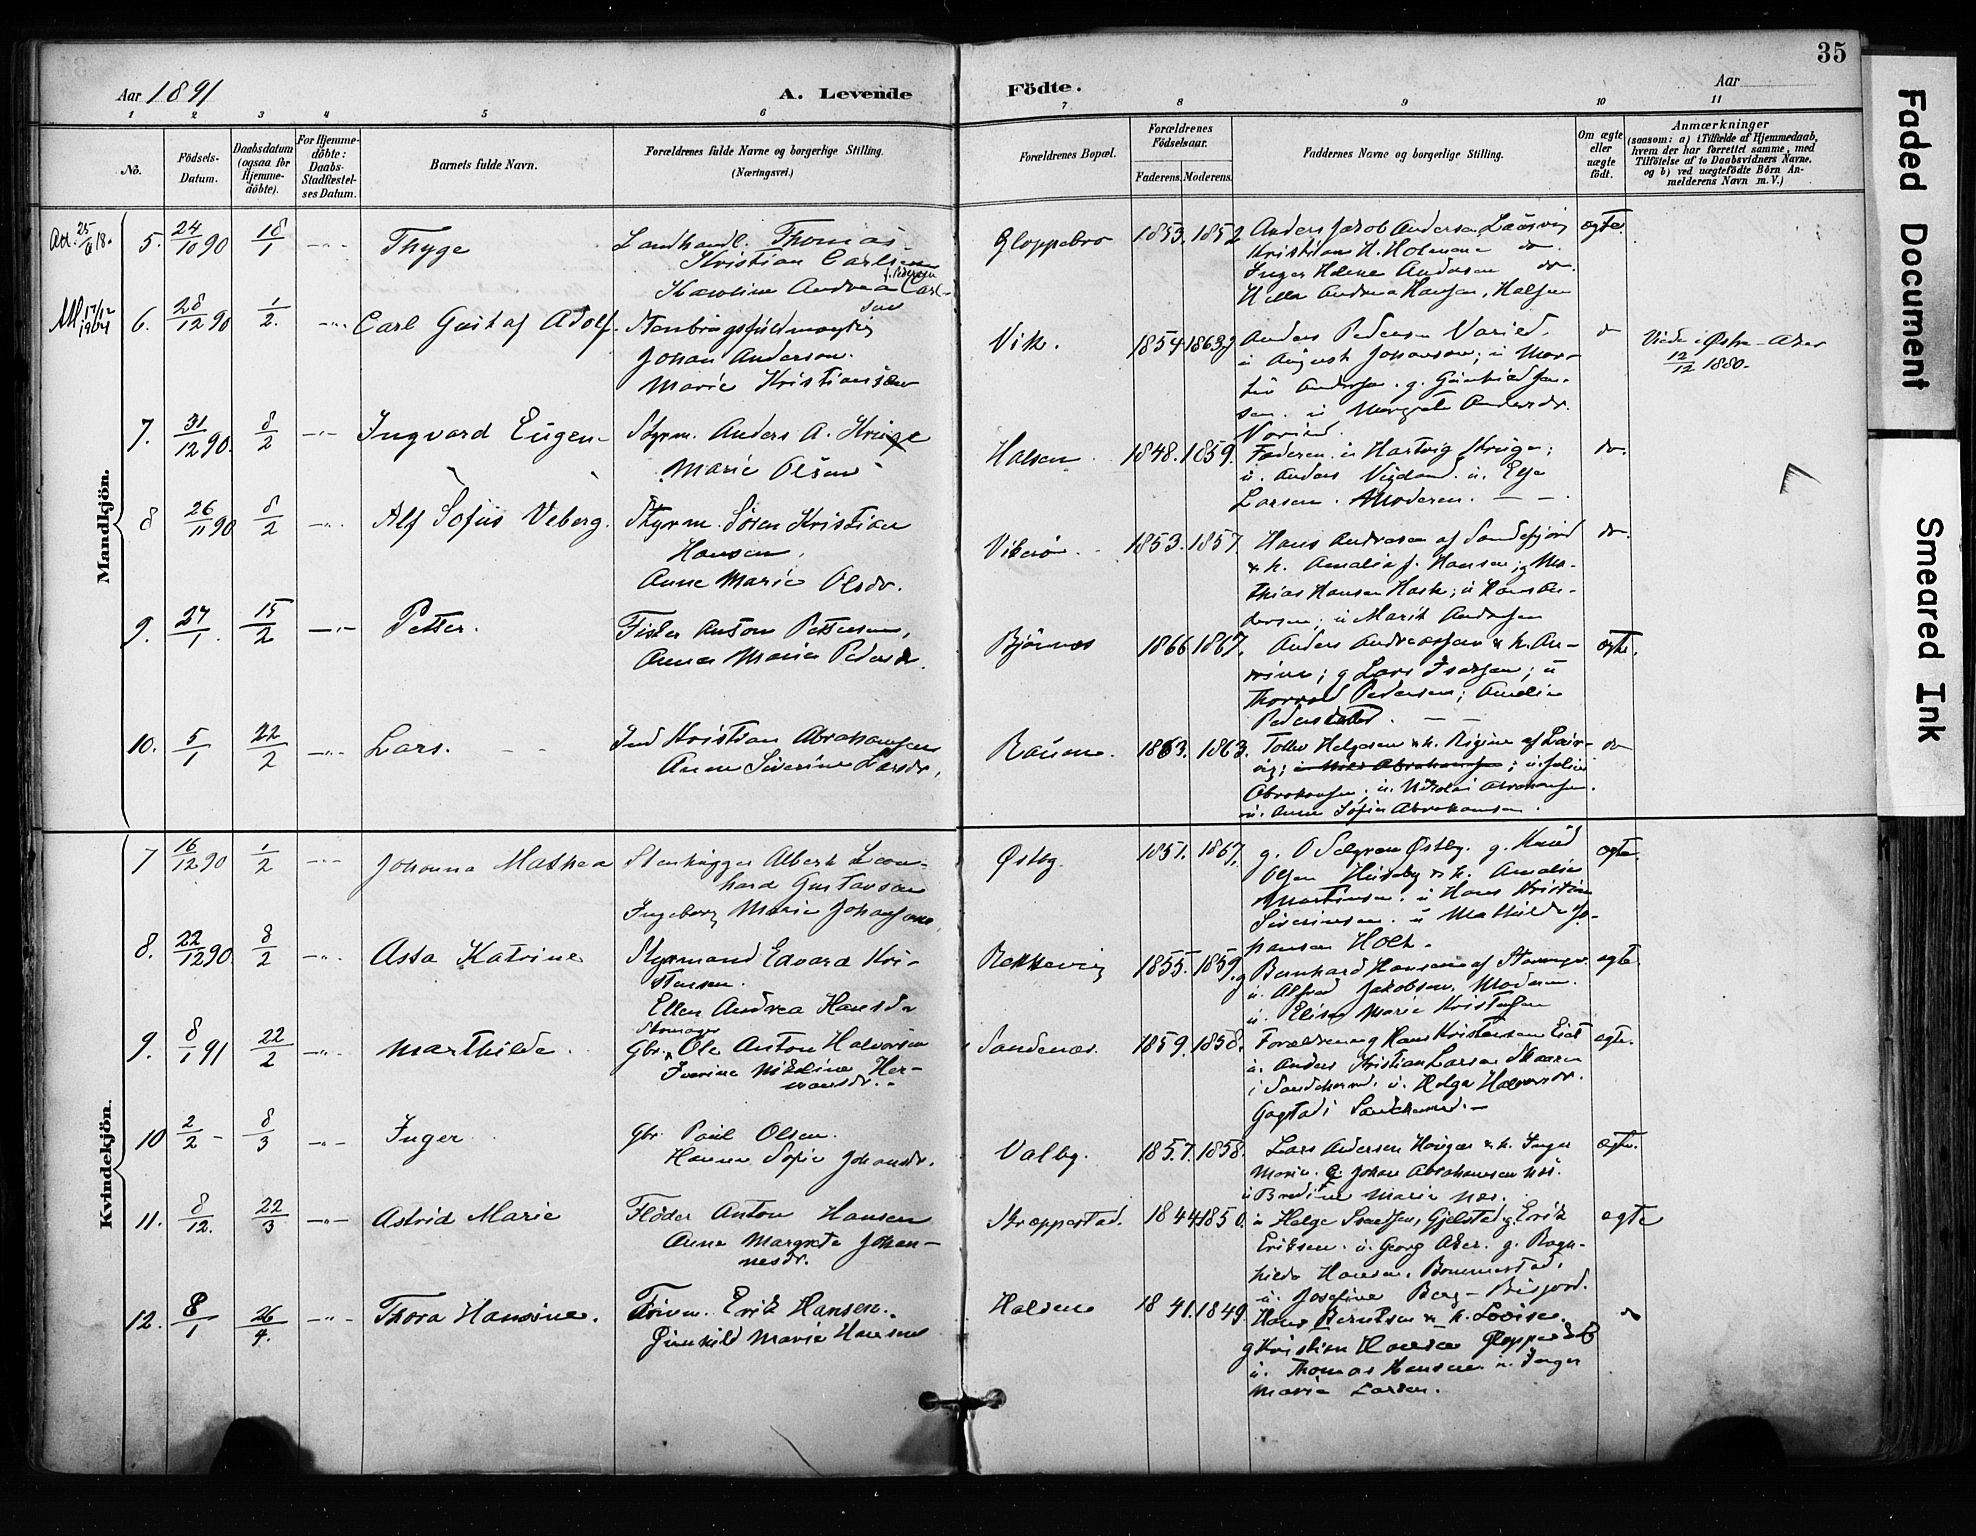 35
Aar 1891
A. Levende
Födte.
Aar
1 2 3 4 5 6 7 8 9 10 11
No.
Födsels-Datum.
Daabsdatum (ogsaa for Hjemme-döbte).
For Hjemme-döbte: Daabs-Stadfæstel-ses Datum.
Barnets fulde Navn.
Forældrenes fulde Navne og borgerlige Stilling. (Næringsvei.)
Forældrenes Bopæl.
Forældrenes Födselsaar.
Faderens. Moderens.
Faddernes Navne og borgerlige Stilling.
Om ægte eller uægte födt.
Anmærkninger
(saasom: a) i Tilfælde af Hjemmedaab,
hvem der har forrettet samme, med
Tilföielse af to Daabsvidners Navne.
og b) ved uægtefödte Börn An-
melderens Navn m. V.)
Mandkjön.
5. 24/10 90 18/1 -"- Thyge
Landhandl. Thomas
Kristian Carlsen
f. Pedersen
Karoline Andrea Carl-
sen
Gloppebro 1853. 1852
Anders Jakob Andersen Laurvig
Kristian H. Holmene do.
Inger Helene Andersen do.
Hilla Andrea Hansen, Halsen
ægte
6. 28/12 90 1/2. -"- Carl Gustaf Adolf
Stenbrugsfuldmægtig
Johan Anderson.
Marie Kristiansen
Vik. 1854 1863
Anders Pedersen Varild.
u August Johanson; u Mar-
tin Andersen. g. Gunhild Jan-
sen. u Margrete Andersdr.
Varild.
do
Viede i Østre-Aker
12/12 1880.
7. 31/12 90. 8/2 -"- Ingvard Eugen
Styrm. Anders A. Kruge
Marie Olsen
Halsen 1848. 1859.
Faderen. u Hartvig Kruge;
u. Anders Vigdad. u. Else
Larsen. Moderen. — —
do.
8 26/11 90 8/2 -"- Alf Sofus Veberg.
Styrm. Sören Kristian
Hansen,
Anne Marie Olsdr.
Vikerön 1853. 1857
Hans Andresen af Sandefjord
& h. Amalie f. Hansen; g Ma-
thias Hansen Hask; u Hans An-
dersen; u Marit Andersen
do.
9. 27/1. 15/2 -"- Petter.
Fisker Anton Pettersen,
Anna Maria Pedersdr.
Bjönnes 1866 1867.
Anders Andreassen & h. An-
drine; g Lars Isaksen; u
Thorvald Pedersen; Amelia
Pedersdatter. — —
ægte.
10. 5/1 22/2 -"- Lars.
Ind Kristian Abrahamsen
Anne Severine Larsdr.
Rauan. 1863. 1863.
Tollev Helgesen & h. Regine af Laur-
vig; u. Julius
Abrahamsen; u. Nikolai Abrahamsen
u. Anne Sofie Abrahamsen.
do
Kvindekjön.
7 16/12 90 1/2 -"- Johanna Mathea
Stenhugger Albert Leon-
hard Gustavson
Ingeborg Marie Johansson,
Østby. 1857. 1867.
g. O Selgren Østby. g. Knud
Olsen Huseby & h. Amalie
Martinsen. u Hans Kristian
Severinsen. u Mathilde Jo-
hansen Holt.
ægte.
8. 22/12 90 8/2 -"- Assa Katrine
Styrmand Edvard Kri-
stensen.
Ellen Andrea Hansdr
Rekkevig 1855. 1859.
g Bernhard Hansen af Stavanger.
u. Alfred Jakobsen, Moderen.
u. Elise Marie Kristensen
ægte.
9. 8/1 91 22/2 -"- Marthilde.
Skomager
Gbr. Ole Anton Halvorsen
Iverine Nikoline Her-
mansdr.
Sandenæs. 1859. 1858.
Forældrene g Hans Kristensen Eiet
u. Anders Kristian Larsen Skaaren
i Sandeherred. u. Helga Halvorsdr.
Gogstad i Sandeherred. —
ægte.
10 2/2 - 8/3 -"- Inger
Gbr. Paul Olsen.
Hanne Sofie Johansdr.
Valby. 1857. 1858.
Lars Andersen Haugar & h. Inger
Marie. g. Johan Abrahamsen næs.
u Bredine Marie næs.
ægte.
11. 8/12. 22/3 -"- Astrid Marie
Fløder Anton Hansen
Anne Margrete Johan-
nesdr.
Skreppestad. 1844 1850.
u Helge Svendsen, Gjelstad g Erik
Eriksen. u. Georg Aker. g. Ragn-
hilde Hansen, Bommestad,
u. Josefine Berg - Bisjord.
ægte
12. 8/1 26/4. -"- Thora Hansine.
Erik Hansen.
Gunhild Marie Hansen
Halsene 1841. 1849
Hans Berntsen & h. Lovise.
g Kristian Hansen Gloppe
u. Thomas Hansen u. Inger
Marie Larsen.
do
Faded Document
Smeared Ink